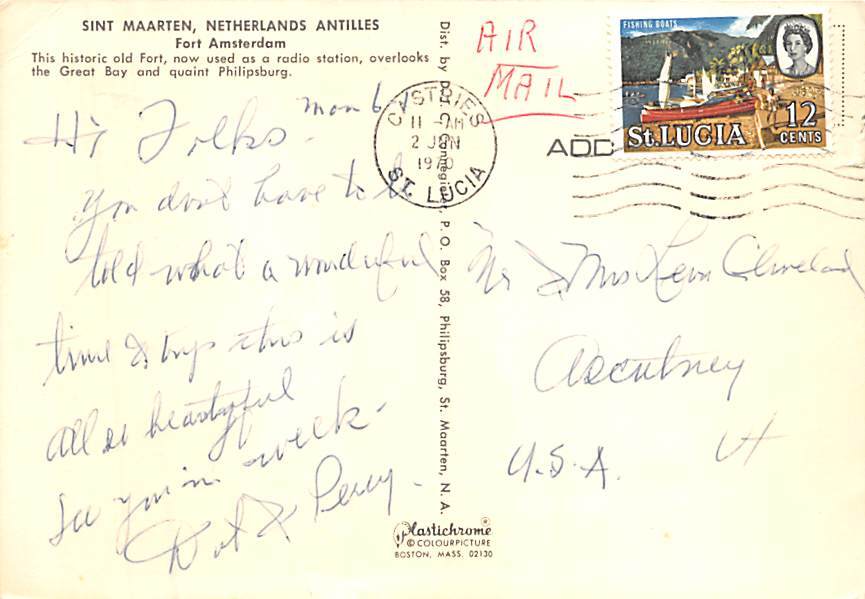 SINT MAARTEN, NETHERLANDS ANTILLES
Fort Amsterdam
This historic old Fort, now used as a radio station, overlooks
the Great Bay and quaint Philipsburg.
Mon 6
Hi Folks -
You don't have to be
told what a wonderful
time & trip this is
All so beautyful
See you in week -
Dot & Percy -
Dist. by P.O. Box 58, Philipsburg, St. Maarten, N. A.
AIR
MAIL
CASTRIES
11 AM
2 JUN
1970
ST. LUCIA
ADD
FISHING BOATS
St. LUCIA
12
CENTS
Mr & Mrs Leon Cleveland
Ascutney
Vt
U.S.A.
Plastichrome®
© COLOURPICTURE
BOSTON, MASS. 02130